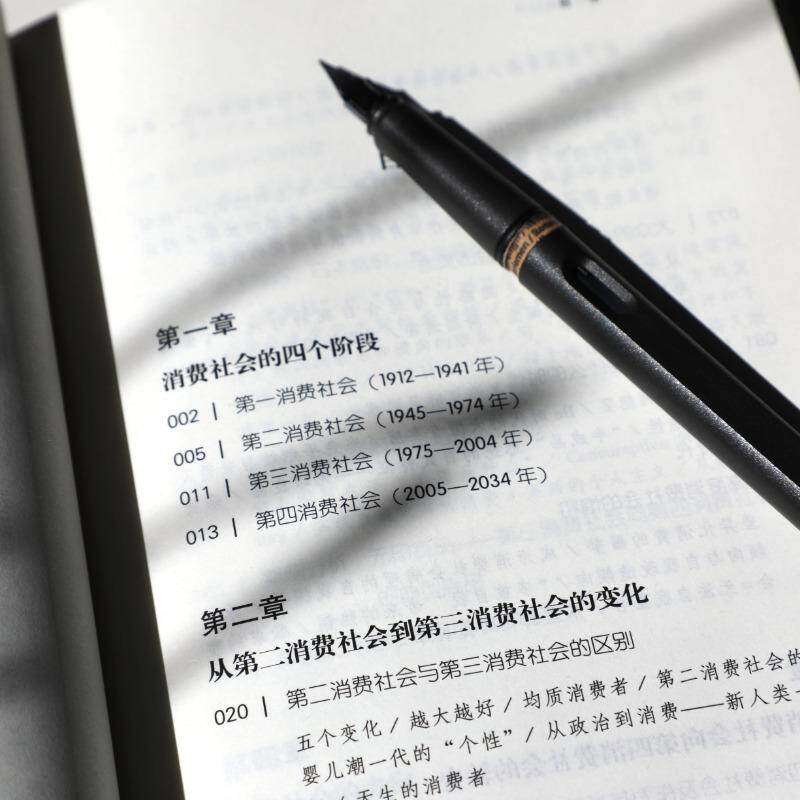 第一章
消费社会的四个阶段
002 | 第一消费社会（1912—1941 年）
005 | 第二消费社会（1945—1974 年）
011 | 第三消费社会（1975—2004 年）
013 | 第四消费社会（2005—2034 年）
第二章
从第二消费社会到第三消费社会的变化
020 | 第二消费社会与第三消费社会的区别
五个变化 / 越大越好 / 均质消费者 / 第二消费社会的
婴儿潮一代的“个性” / 从政治到消费——新人类一
/ 天生的消费者